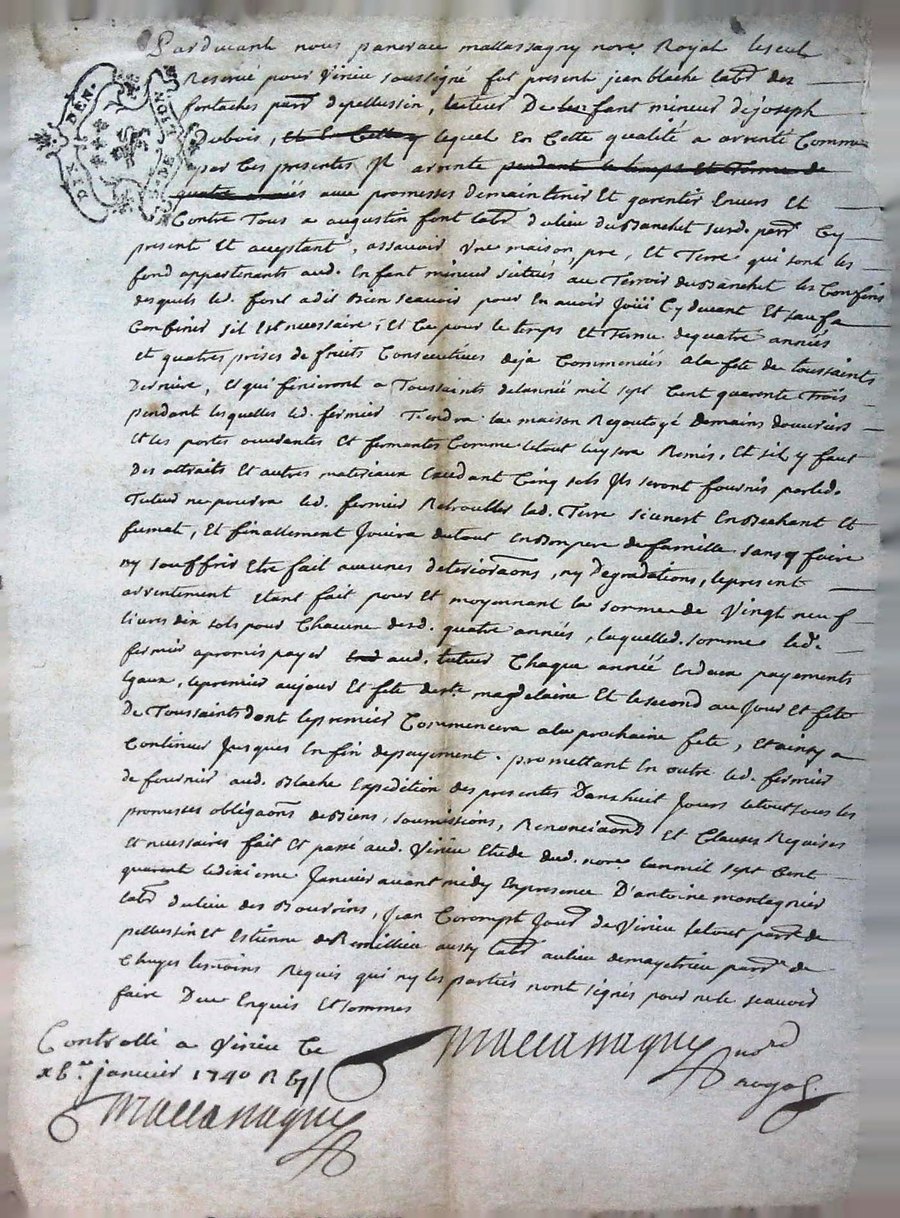 Pardevant nous pancrace mallassagny nore Royal le seul
Reservé pour Virieu soussigné fut present jean blache labr des
fontaches parr de pellussin, tuteur De les fant mineur de joseph
Dubois, lequel En Cette qualité a arrenté Comme
par Ces presentes Il arrente pendant le temps Et Terme de
quatre années aux promesses de maintenir Et garentir Envers Et
Contre Tous a augustin font labr du lieu du Banchet susd. parr Cy
present Et acceptant, assavoir Vne maison, pre, Et Terre qui sont les
fond appartenants aud. Enfant mineur scitués au Terroir du Banchet les Confins
desquels led. font a dit Bien scavoir pour En avoir Joüi Cydevant Et sauf a
Confiner sil Est necessaire; Et Ce pour le temps Et Terme de quatre années
Et quatres prises de fruits Consecutives deja Commencées a la fete de toussaints
Derniere, Et qui finiront a Toussaints de lannée mil sept Cent quarente Trois
pendant lesquelles led. fermier Tiendra la maison Regoutoyé Demains douvriers
Et les portes ouvrantes Et fermantes Comme le tout luy sera Remis, Et sil y faut
Des attraits Et autres materiaux Excedant Cinq sols Ils seront fournis par led.
Tuteur ne pourra led. fermier Retroubler lad. Terre si cenest En Bechant Et
fumat, Et finallement Jouira du tout En Bon pere de famille sans y faire
ny souffrir Etre fait aucunes deterioraons, ny Degradations, le present
arrentement Etant fait pour Et moyonnant la somme de Vingt neuf
livres dix sols pour Chacune desd. quatre années, laquelled. somme led.
fermier a promis payer aud. tuteur Chaque année En deux payements
Egaux, le premier au jour Et fete de ste magdelaine Et le second au Jour Et fete
De Toussaints dont le premier Commencera a la prochaine fete, Et ainsy a
Continuer Jusques En fin de payement. promettant En outre led. fermier
de fournir aud. Blache Expedition des presentes Dans huit Jours le tout sous les
promesses obligaons de Biens, soumissions, Renonciaons Et Clauses Requises
Et necessaires fait Et passé aud. Virieu Etude dud. nore lan mil sept Cent
quarent le dixieme Janvier avant midy En presence D'antoine montagnier
labr du lieu des Bourrins, Jean Corompt Jourr de Virieu le tout parr de
pellussin Et Estienne de Remillieu aussy labr au lieu de mayetrieu parr de
Chuyes temoins Requis qui ny les parties nont signés pour ne le scavoir
faire Deue Enquis Et sommes
Mallassagny nore
royal
Controllé a Virieu Ce
janvier 1740 R
Mallassagny
DIX DEN
NOIT
NE